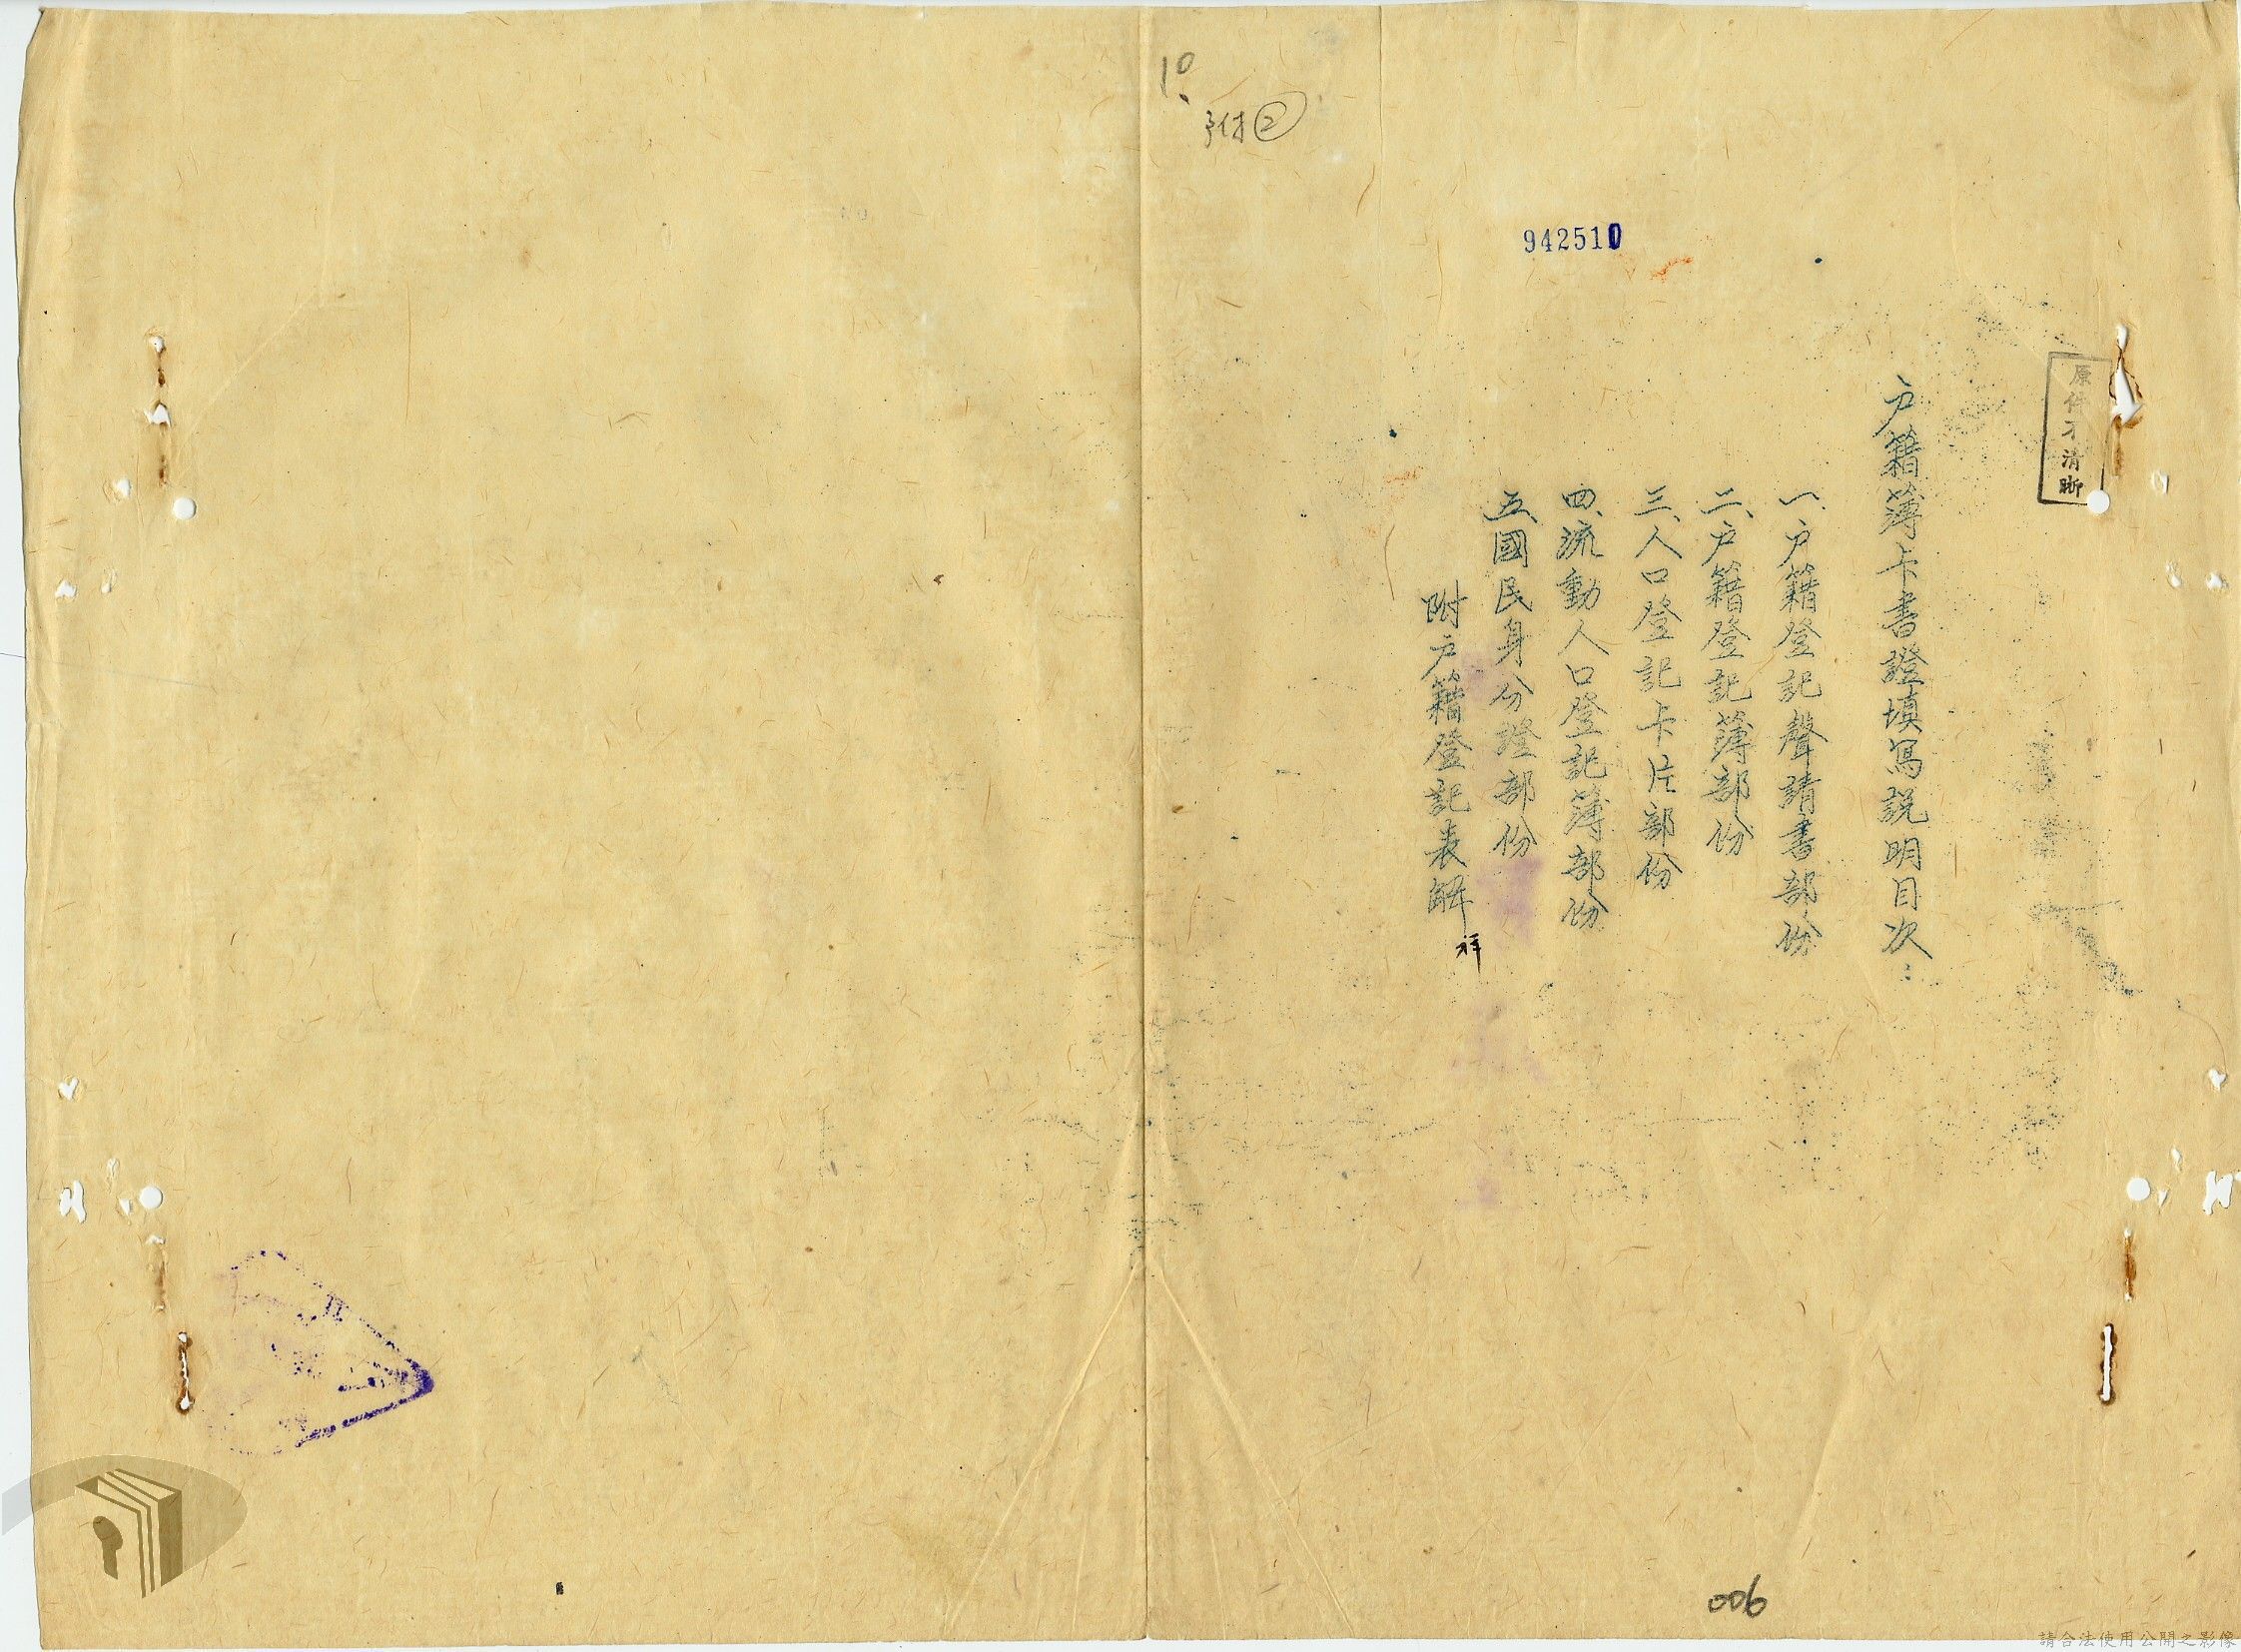 10.
附②
942510
原件不清晰
户籍簿卡書證填寫説明目次：
一、户籍登記聲請書部份
二、户籍登記簿部份
三、人口登記卡片部份
四、流動人口登記簿部份
五、國民身分證部份
附户籍登記表解
祥
006
請合法使用公開之影像